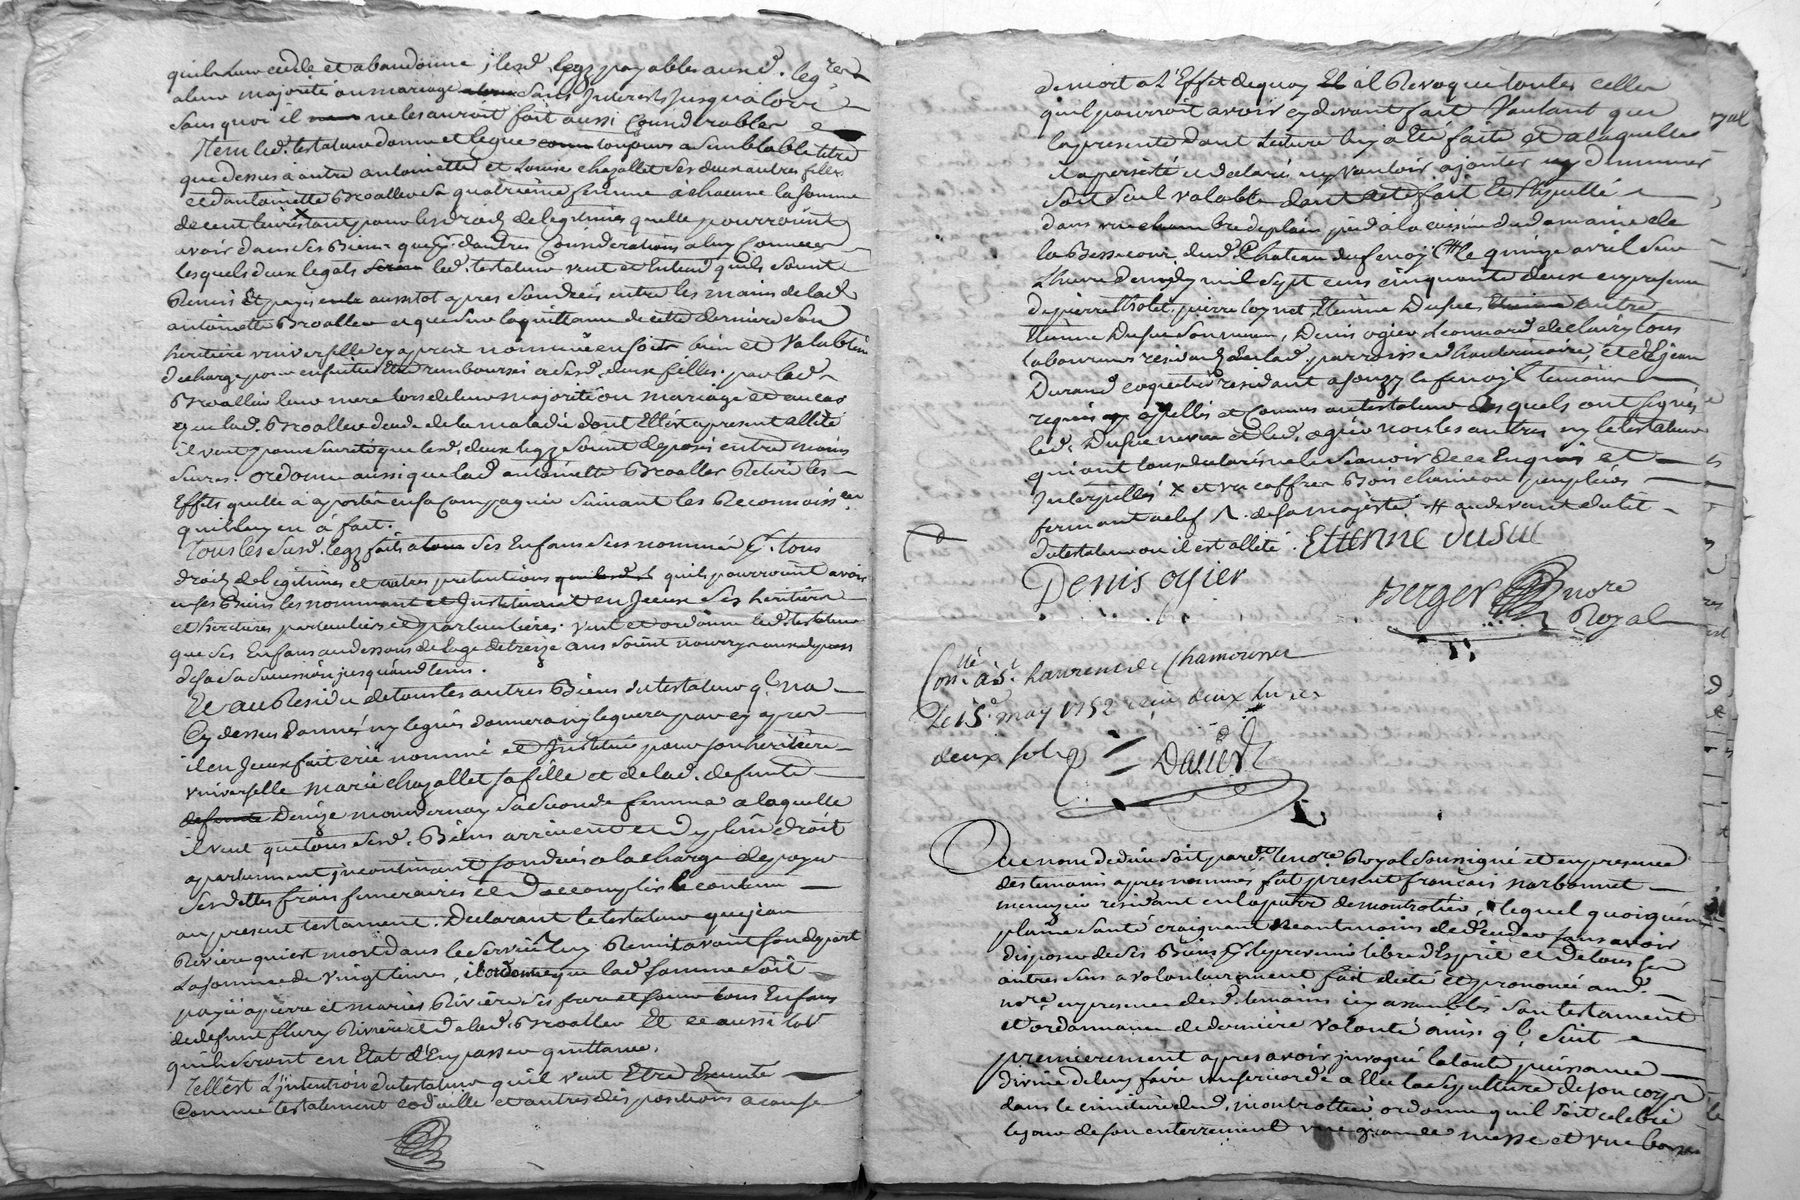 qu'il leur cede et abandonne, lesd. legz payables ausd. leg.res
a leur majorité ou mariage sans Interests jusqu'alors
sans quoi il ne les auroit fait aussi Considerables
Item led. testateur donne et legue toujours a semblable titre
que dessus a autre antoinette et Louise chazallet ses deux autres filles
et d'antoinette Broallier sa quatrieme femme a chacune la somme
de cent livres tant pour les droits de legitimes quelle pourroint
avoir dans ses Biens que p.r d'autres Considerations a luy Connues
lesquels deux legats led. testateur veut et Entend qu'ils soint
Remis Et payés aussitot apres son decés entre les mains de lad.
antoinette Broallier et que sur la quittance de cette derniere son
heritiere universelle cy apres nommée en soit bien et valablem.
dechargé pour ensuite Etre remboursés a sesd. deux filles par lad.
Broallier leur mere lors de leur majorité ou mariage et au cas
que lad. Broallier decede de la maladie dont Elle est a present allitée
il veut pour sureté que lesd. deux legz soint deposés entre mains
seures. ordonne aussi que lad. antoinette Broallier Retire les
Effets quelle a aportés en sa Compagnie suivant les Reconnoiss.ces
qu'il luy en a fait.
Tous les susd. legz faits a ses Enfans sus nommés p.r tous
droits de legitimes et autres pretentions qu'ils pourroint avoir
en ses Biens les nommant et Instituant en Iceux ses heritiers
et heritieres particuliers et particulieres. veut et ordonne led. testateur
que ses Enfans au dessous de l'age de treize ans soint nourrys aux depens
de sa succession jusqu'aud. tems.
Et au Residu de tous les autres Biens du testateur q.l n'a
Cy dessus donné ny legué donnera ny leguera par cy apres
il en Iceux fait crée nommé et Institue pour son heritiere
universelle marie chazallet sa fille et de lad. defunte
Denize mondernay sa seconde femme a laquelle
il veut que tous sesd. Biens arrivent et d'y plein droit
apartiennent incontinent son decés a la charge de payer
ses dettes frais funeraires et d'accomplir le contenu
au present testament. Declarant le testateur que jean
Riviere qui est mort dans le service luy Remit avant son depart
La somme de vingt livres, il ordonne que lad. somme soit
payée a pierre et maries Riviere ses frere et soeur tous Enfans
de defunt fleury Riviere et de lad. Broallier Et ce aussi tot
qu'ils seront en Etat d'En passer quittance.
Telle est l'intention du testateur qu'il veut Etre Executé
Comme testament codicille et autres dispositions a cause
de mort a l'Effet dequoy il Revoque toutes celles
qu'il pourroit avoir cy devant fait Voulant que
la presente dont Lecture luy a été faite et a laquelle
il a persisté et declaré n'y vouloir ajouter ny diminuer
soit seul valable dont acte fait Et stipullé
dans une chambre de plain pied a la cuisine du domaine de
la Bassecour dud. Chateau du fenoÿl le quinze avril sur
L'heure de midy mil sept cens cinquante deux en presence
de pierre Tholet, pierre Coynet, Etienne Dusuc, autre
Etienne Dusuc son neveu, Denis ogier, Leonnard declairy tous
laboureurs residants en lad. parroisse d'hauterivoire, et de jean
Durand coquetier residant a souzy le fenoÿl temoins
requis appellés et Connus au testateur desquels ont signés
led. Dusuc neveu et led. ogier non les autres ny le testateur
qui ont tous declarés ne le sçavoir de ce Enquis et
Interpellés x et un coffre Bois chaine ou peuplier
fermant a clef /. de sa majesté # au devant du lit
du testateur ou il est allité. ETienne dusuc
Denis ogier
Berger nore
Royal
Con.llé a S.t Laurent de Chamousset
Le 15.e may 1752 reçu deux livres
deux sols
David
Au nom de dieu soit pard.t le no.re Royal soussigné et en presence
des temoins apres nommés fut present francois narbonnet
menuzier residant en la parr.e de montrottier, lequel quoiqu'en
plaine santé craignant neantmoins de deceder sans avoir
disposé de ses Biens p.r le prevenir libre d'Esprit et de tous ses
autres sens a volontairement fait dicté et prononcé aud.
no.re en presence desd. temoins icy assemblés son testament
et ordonnance de derniere volonté ainsi q.l suit
premierement apres avoir invoqué la toute puissance
divine de luy faire misericorde a Elu la sepulture de son corps
dans le cimitiere dud. montrottier ordonne qu'il soit celebré
le jour de son enterrement une grande messe et une basse